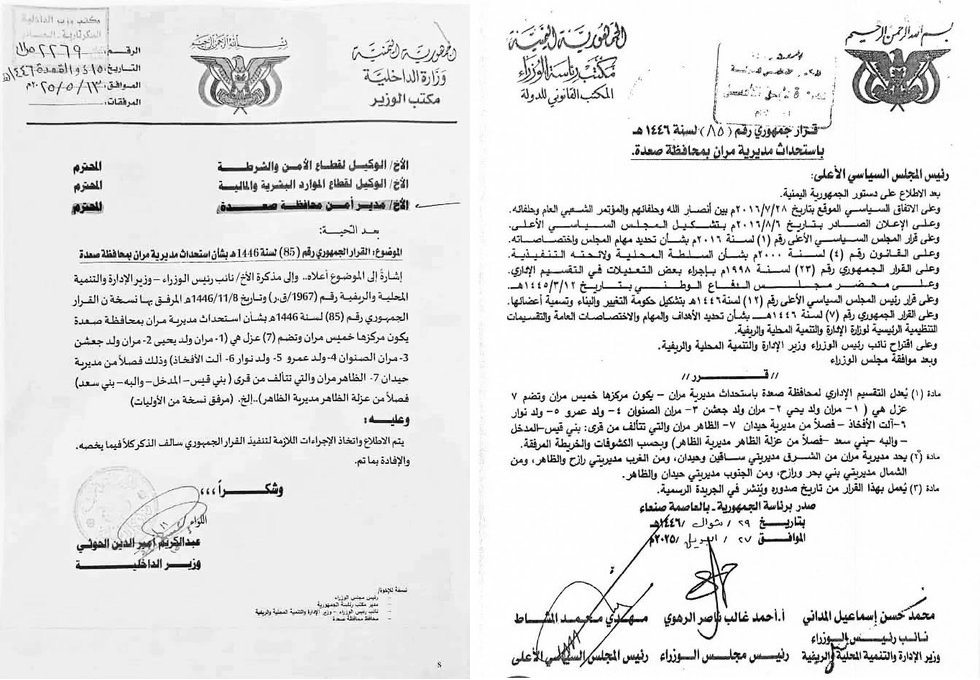 بسم الله الرحمن الرحيم
الجمهورية اليمنية
وزارة الداخلية
مكتب الوزير
مكتب وزير الداخلية
الرقم: ٢٢٦٩
التاريخ: ١٥ ذو القعدة ١٤٤٦هـ
الموافق: ٢٠٢٥/٥/١٣م
المرفقات:
الأخ/ الوكيل لقطاع الأمن والشرطة المحترم
الأخ/ الوكيل لقطاع الموارد البشرية والمالية المحترم
الأخ/ مدير أمن محافظة صعدة المحترم
بعد التحية:
الموضوع: القرار الجمهوري رقم (85) لسنة 1446هـ بشأن استحداث مديرية مران بمحافظة صعدة
إشارةً إلى الموضوع أعلاه.. وإلى مذكرة الأخ/ نائب رئيس الوزراء – وزير الإدارة والتنمية
المحلية والريفية رقم (1967/ق.ر) وتاريخ 1446/11/8هـ المرفق بها نسخة من القرار
الجمهوري رقم (85) لسنة 1446هـ بشأن استحداث مديرية مران بمحافظة صعدة
يكون مركزها خميس مران وتضم (7) عزل هي (1- مران ولد يحيى 2- مران ولد جعشن
3- مران الصنوان 4- ولد عمرو 5- ولد نوار 6- آلت الأفخاذ) وذلك فصلاً من مديرية
حيدان 7- الظاهر مران والتي تتألف من قرى (بني قيس – المدخل – والبه – بني سعد)
فصلاً من عزلة الظاهر مديرية الظاهر)..إلخ. (مرفق نسخة من الأوليات)
وعليه:
يتم الاطلاع واتخاذ الإجراءات اللازمة لتنفيذ القرار الجمهوري سالف الذكر كلاً فيما يخصه.
والإفادة بما تم.
وشكراً ،،،
اللواء
عبدالكريم أمير الدين الحوثي
وزير الداخلية
نسخة للإخوة/
رئيس مجلس الوزراء
مدير مكتب رئاسة الجمهورية
نائب رئيس الوزراء – وزير الإدارة والتنمية المحلية والريفية
محافظ محافظة صعدة
8
بسم الله الرحمن الرحيم
الجمهورية اليمنية
مكتب رئاسة الوزراء
المكتب القانوني للدولة
قرار جمهوري رقم (٨٥) لسنة ١٤٤٦هـ
باستحداث مديرية مران بمحافظة صعدة.
رئيس المجلس السياسي الأعلى:
بعد الاطلاع على دستور الجمهورية اليمنية.
وعلى الاتفاق السياسي الموقع بتاريخ ٢٠١٦/٧/٢٨م بين أنصار الله وحلفائهم والمؤتمر الشعبي العام وحلفائه.
وعلى الإعلان الصادر بتاريخ ٢٠١٦/٨/٦م بتشكيل المجلس السياسي الأعلى.
وعلى قرار المجلس السياسي الأعلى رقم (١) لسنة ٢٠١٦م بشأن تحديد مهام المجلس واختصاصاته.
وعلى القانون رقم (٤) لسنة ٢٠٠٠م بشأن السلطة المحلية ولائحته التنفيذية.
وعلى القرار الجمهوري رقم (٢٣) لسنة ١٩٩٨م بإجراء بعض التعديلات في التقسيم الإداري.
وعلى محضر مجلس الدفاع الوطني بتاريخ ١٤٤٥/٣/١٢هـ.
وعلى قرار رئيس المجلس السياسي الأعلى رقم (١٢) لسنة ١٤٤٦هـ بتشكيل حكومة التغيير والبناء وتسمية أعضائها.
وعلى القرار الجمهوري رقم (٧) لسنة ١٤٤٦هـ بشأن تحديد الأهداف والمهام والاختصاصات العامة والتقسيمات
التنظيمية الرئيسية لوزارة الإدارة والتنمية المحلية والريفية.
وعلى اقتراح نائب رئيس الوزراء وزير الإدارة والتنمية المحلية والريفية.
وبعد موافقة مجلس الوزراء
// قـــرر //
مادة (١) يُعدل التقسيم الإداري لمحافظة صعدة باستحداث مديرية مران – يكون مركزها خميس مران وتضم ٧
عزل هي (١- مران ولد يحيى ٢- مران ولد جعشن ٣- مران الصنوان ٤- ولد عمرو ٥- ولد نوار
٦- آلت الأفخاذ – فصلاً من مديرية حيدان ٧- الظاهر مران والتي تتألف من قرى: بني قيس-المدخل
– والبه – بني سعد -فصلاً من عزلة الظاهر مديرية الظاهر) وبحسب الكشوفات والخريطة المرفقة.
مادة (٢) يحد مديرية مران من الشرق مديريتي ساقين وحيدان، ومن الغرب مديريتي رازح والظاهر، ومن
الشمال مديريتي بني بحر ورازح، ومن الجنوب مديريتي حيدان والظاهر.
مادة (٣) يُعمل بهذا القرار من تاريخ صدوره ويُنشر في الجريدة الرسمية.
صدر برئاسة الجمهورية – بالعاصمة صنعاء
بتاريخ ٢٩ / شوال / ١٤٤٦هـ
الموافق ٢٧ / ابريل / ٢٠٢٥م
محمد حسن إسماعيل المداني
نائب رئيس الوزراء
وزير الإدارة والتنمية المحلية والريفية
أ.أحمد غالب ناصر الرهوي
رئيس مجلس الوزراء
مهدي محمد المشاط
رئيس المجلس السياسي الأعلى